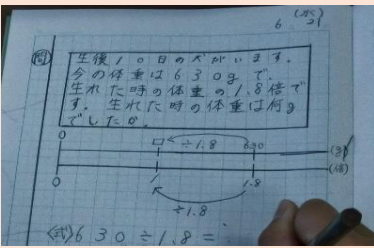 6 21
問
生後10日の犬がいます。
今の体重は630gで、
生れた時の体重の1.8倍で
す。生れた時の体重は何g
でしたか。
0 □ ÷1.8 630 (g)
0 1 1.8 (倍)
÷1.8
〈式〉630÷1.8=